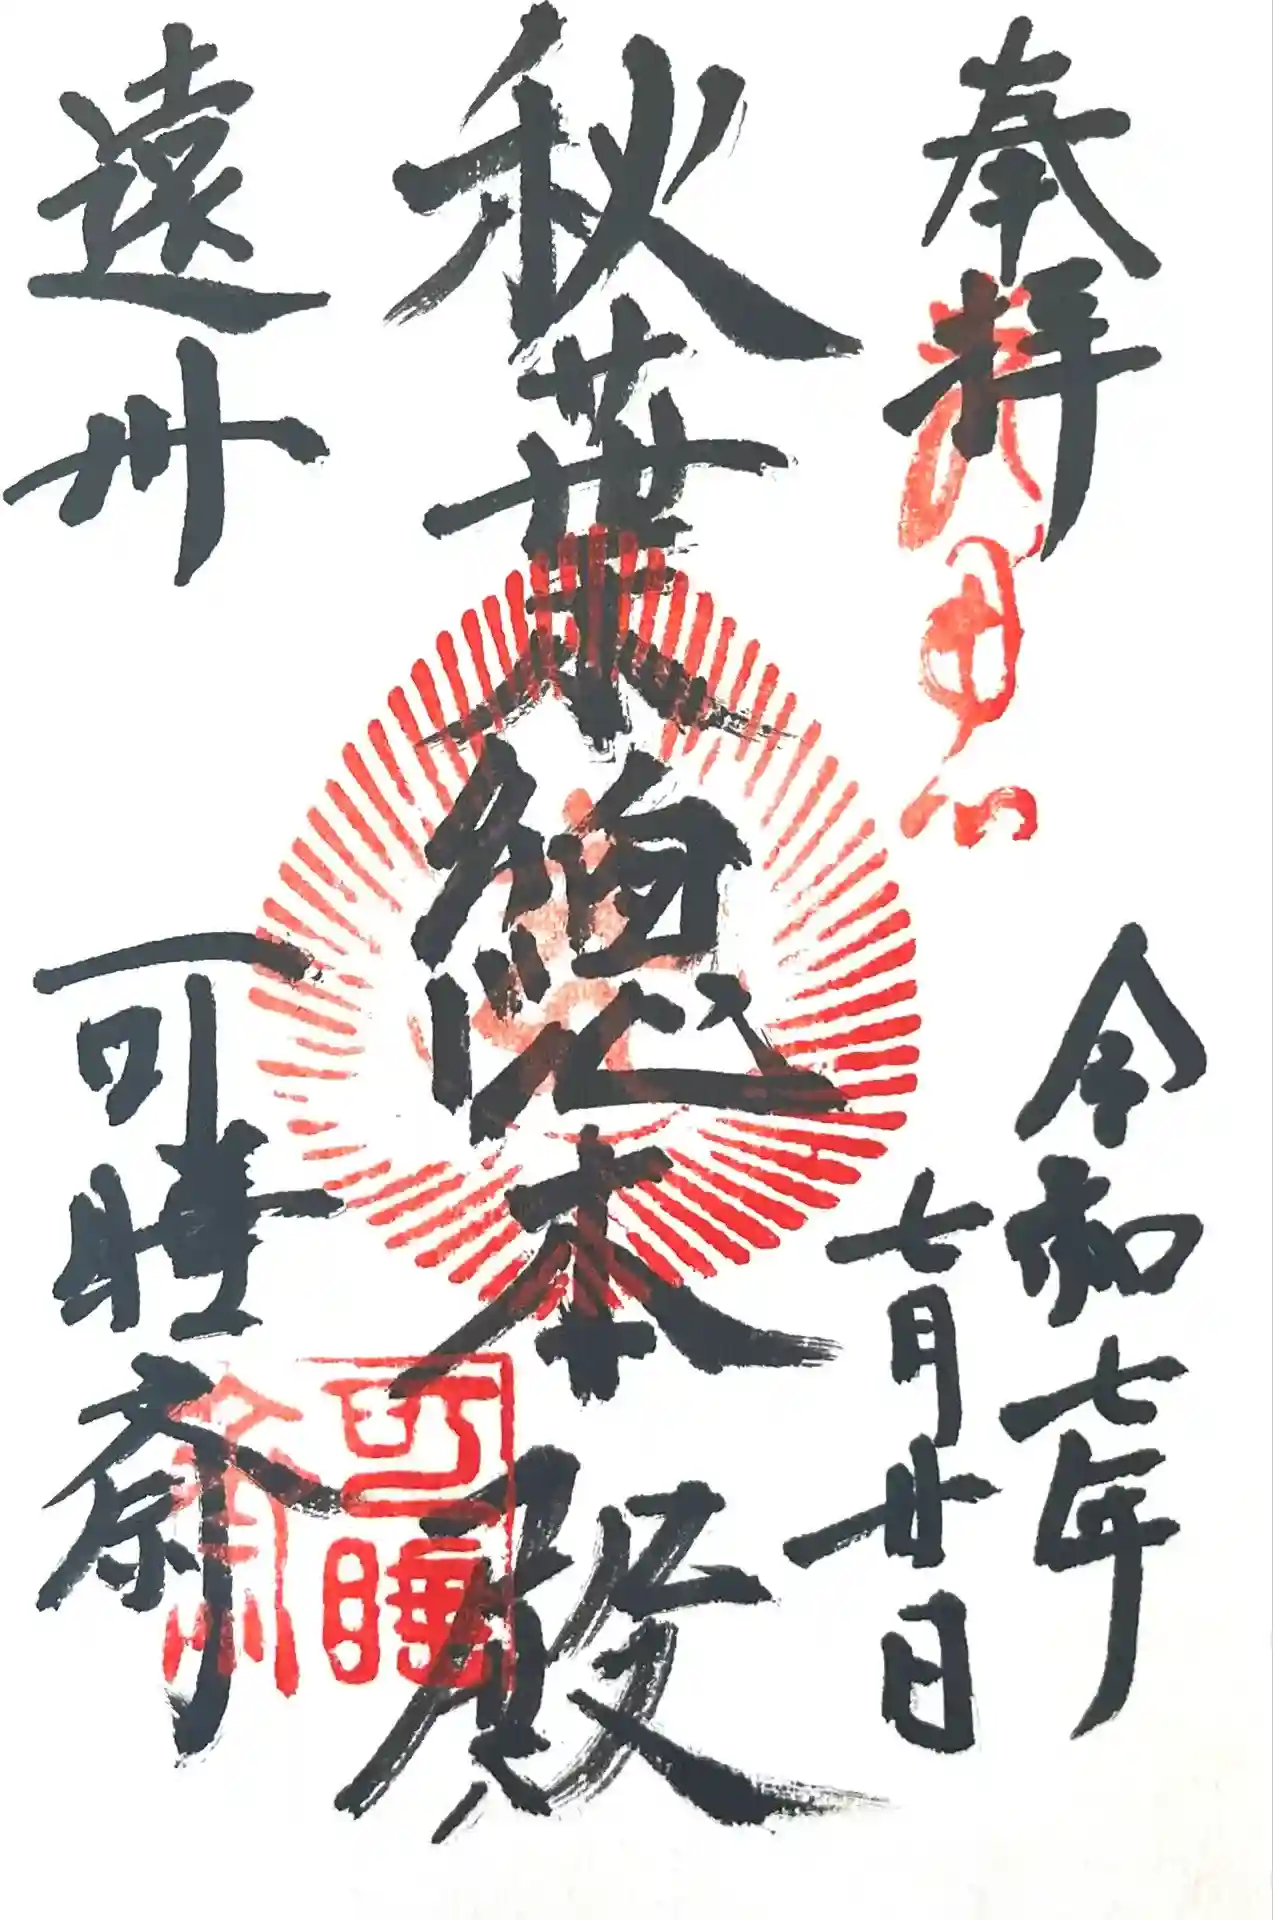 奉拝
令和七年
七月廿日
秋葉總本殿
遠州
可睡斎
可睡
齋